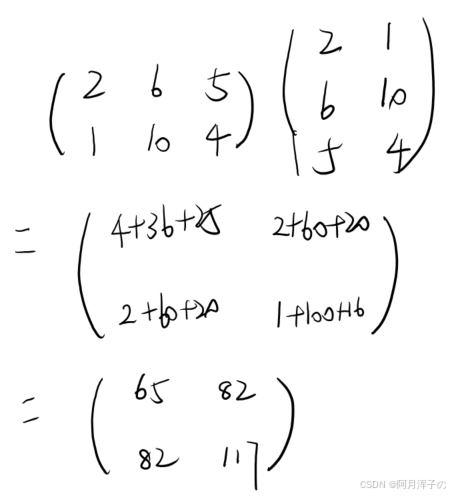 2 6 5 2 1
1 10 4 6 10
5 4
= 4+36+25 2+60+20
2+60+20 1+100+16
= 65 82
82 117
CSDN @阿月浑子の